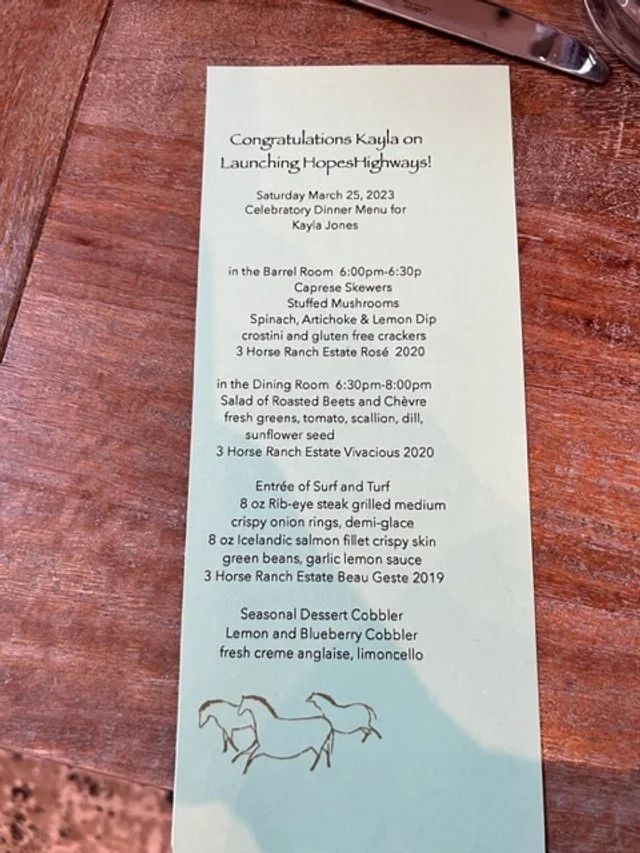 Congratulations Kayla on
Launching HopesHighways!
Saturday March 25, 2023
Celebratory Dinner Menu for
Kayla Jones
in the Barrel Room 6:00pm-6:30p
Caprese Skewers
Stuffed Mushrooms
Spinach, Artichoke & Lemon Dip
crostini and gluten free crackers
3 Horse Ranch Estate Rosé 2020
in the Dining Room 6:30pm-8:00pm
Salad of Roasted Beets and Chèvre
fresh greens, tomato, scallion, dill,
sunflower seed
3 Horse Ranch Estate Vivacious 2020
Entrée of Surf and Turf
8 oz Rib-eye steak grilled medium
crispy onion rings, demi-glace
8 oz Icelandic salmon fillet crispy skin
green beans, garlic lemon sauce
3 Horse Ranch Estate Beau Geste 2019
Seasonal Dessert Cobbler
Lemon and Blueberry Cobbler
fresh creme anglaise, limoncello